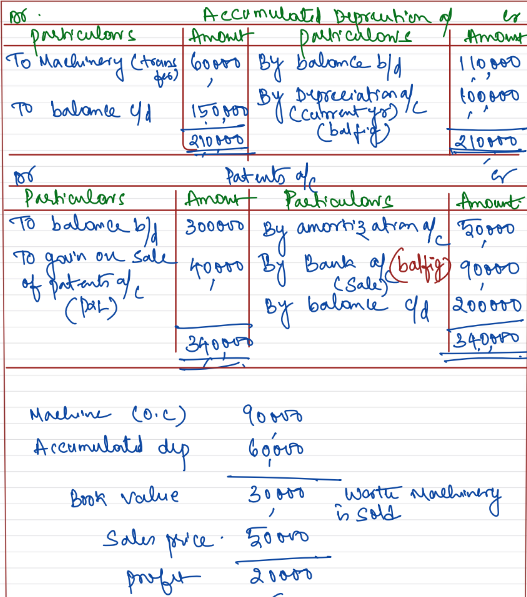 Dr. Accumulated Depreciation a/c cr
particulars Amount particulars Amount
To Machinery (transfer) 60,000 By balance b/d 110,000
To balance c/d 150,000 By Depreciation a/c (current yr) (balfig) 100,000
210,000 210,000
Dr Patents a/c cr
Particulars Amount Particulars Amount
To balance b/d 300000 By amortization a/c 50,000
To gain on sale of patents a/c (P&L) 40,000 By Bank a/c (balfig) (Sale) 90,000
By balance c/d 200000
340,000 340,000
Machine (O.C) 90,000
Accumulated dep 60,000
Book value 30,000 Worth Machinery is sold
Sales price. 50000
profit 20000